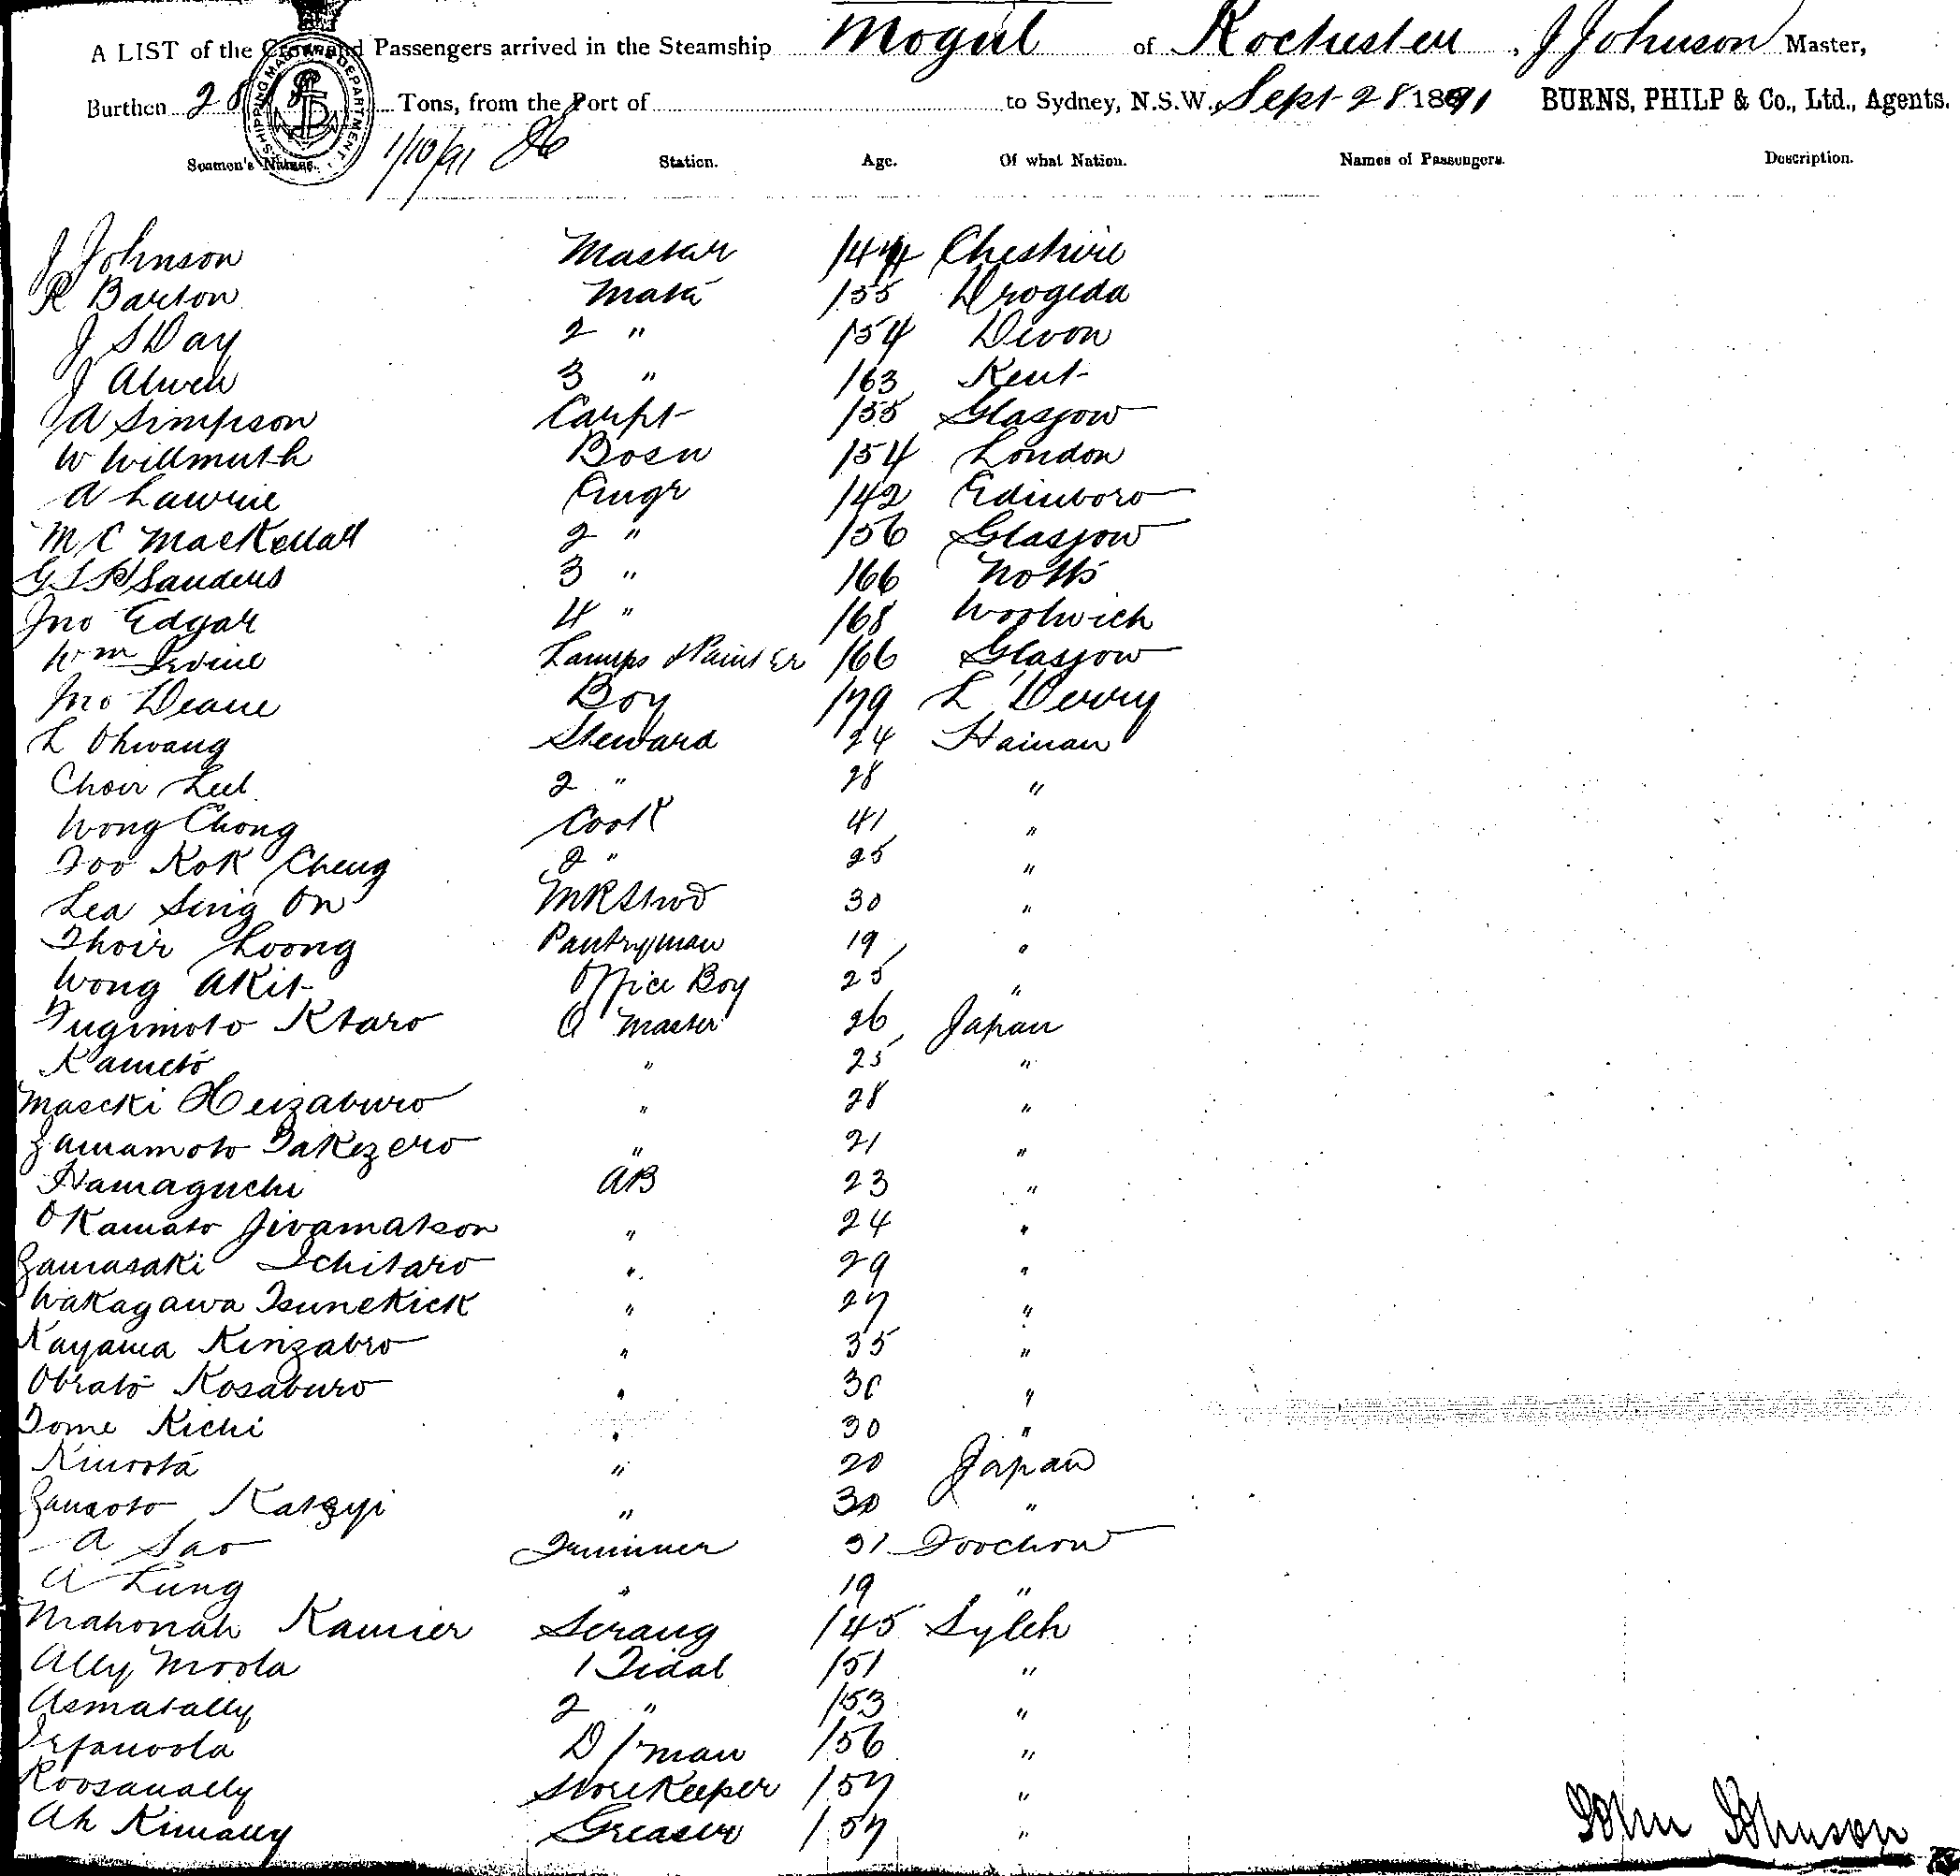 A LIST of the Crew and Passengers arrived in the Steamship Mogul of Rochester, J Johnson Master,
Burthen Tons, from the Port of to Sydney, N.S.W., Sept 28 1891 BURNS, PHILP & Co., Ltd., Agents.
SHIPPING MASTER'S DEPARTMENT
1/10/91
Seamen's Names. Station. Age. Of what Nation. Names of Passengers. Description.
J Johnson Master /44 Cheshire
R Barton Mate /55 Drogeda
J S Day 2 " /54 Devon
J Alwen 3 " /63 Kent
JA Simpson Carpt /55 Glasgow
W Willmuth Bosn /54 London
A Lawrie Engr /42 Edinboro
M C MacKellar 2 " /56 Glasgow
Sanders 3 " /66 Notts
Jno Edgar 4 " /68 Woolwich
Wm Irvine Lamps & Painter /66 Glasgow
Jno Deane Boy /79 L'Derry
L Ohwang Steward 24 Hainan
Choir Lul 2 " 28 "
Wong Chong Cook 41 "
Foo Kok Cheng 2 " 25 "
Lea Sing On MRStwd 30 "
Thoir Loong Pantryman 19 "
Wong Akit Office Boy 25 "
Fugimoto Ktaro Q Master 26 Japan
Kameto " 25 "
Mascki Heizaburo " 28 "
Yamamoto Takezero " 21 "
Hamaguchi AB 23 "
Okamato Jivamatson " 24 "
Yamasaki Ichitaro " 29 "
Wakagawa Tsunekick " 27 "
Kayama Kinzabro " 35 "
Obrato Kosaburo " 30 "
Tome Kichi " 30 "
Kinoota " 20 Japan
Katzyi " 30 "
A Sao Trimmer 31 Foochow
A Lung " 19 "
Mahonah Kamier Serang /45 Sylch
Ally Moola 1 Tidal /51 "
Asmatally 2 " /53 "
Irfanoola D/man /56 "
Roosanally Storekeeper /57 "
Ah Kimally Greaser /57 "
John Johnson